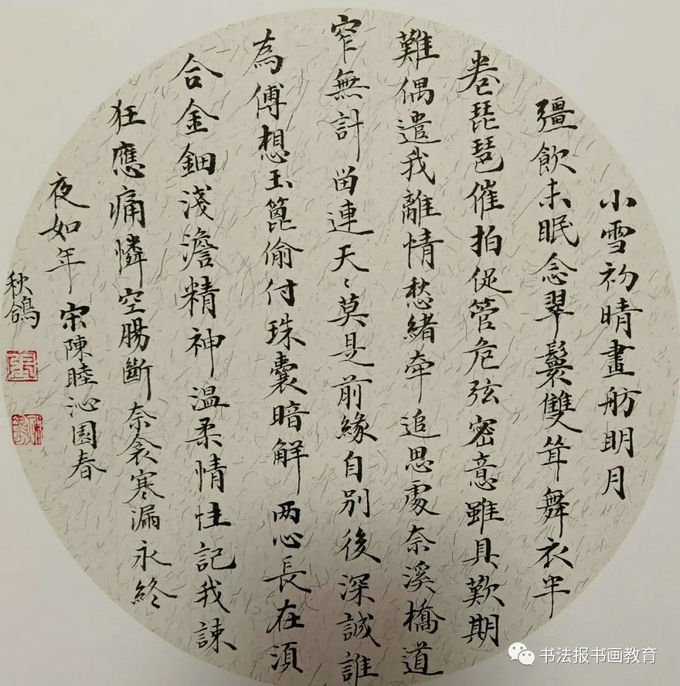 小雪初晴畫舫明月
彊飲未眠念翠鬟雙聳舞衣半
卷琵琶催拍促管危弦密意雖具歎期
難偶遣我離情愁緒牽追思處奈溪橋道
窄無計留連天〻莫是前緣自別後深誠誰
為傳想玉篦偷付珠囊暗解兩心長在須
合金鈿淺澹精神温柔情性記我疎
狂應痛憐空腸斷奈衾寒漏永終
夜如年 宋陳睦沁園春
秋鴿
书法报书画教育